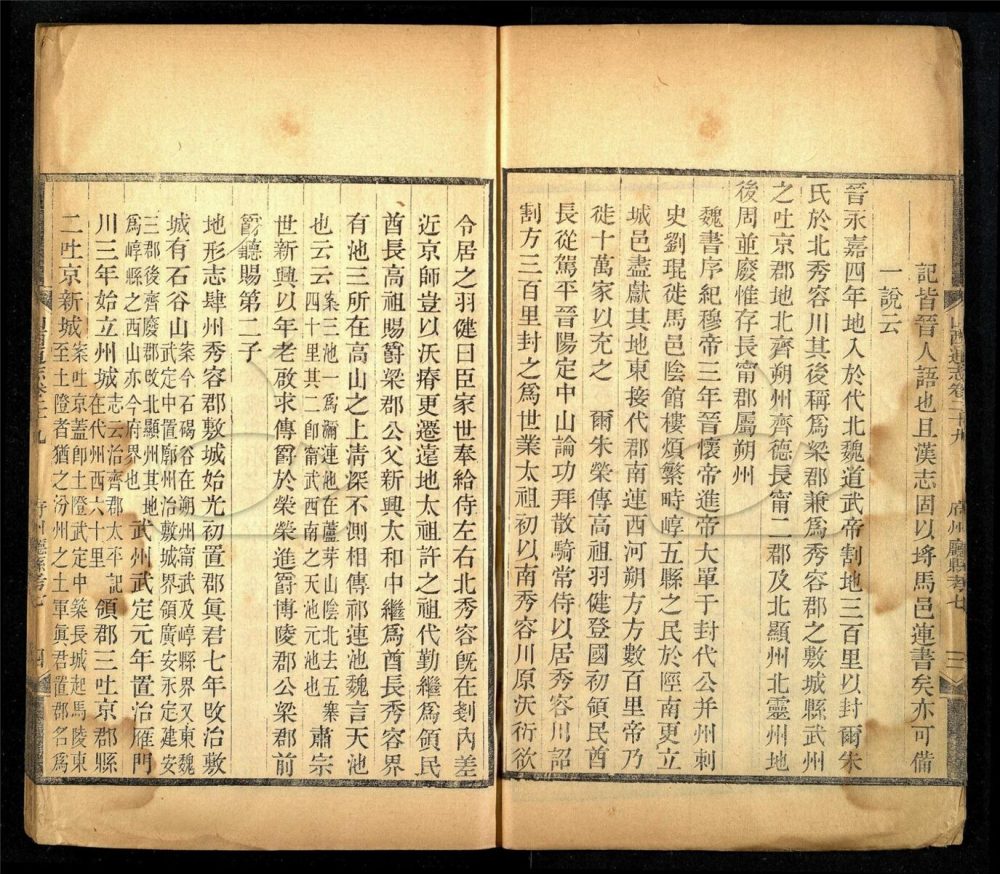 記皆晉人語也且漢志固以埒馬邑連書矣亦可備
一說云
晉永嘉四年地入於代北魏道武帝割地三百里以封爾朱
氏於北秀容川其後稱爲梁郡兼爲秀容郡之敷城縣武州
之吐京郡地北齊朔州齊德長甯二郡及北顯州北靈州地
後周並廢惟存長甯郡屬朔州
魏書序紀穆帝三年晉懷帝進帝大單于封代公并州刺
史劉琨徙馬邑陰館樓煩繁畤崞五縣之民於陘南更立
城邑盡獻其地東接代郡南連西河朔方方數百里帝乃
徙十萬家以充之　爾朱榮傳高祖羽健登國初領民酋
長從駕平晉陽定中山論功拜散騎常侍以居秀容川詔
割方三百里封之爲世業太祖初以南秀容川原沃衍欲
令居之羽健曰臣家世奉給侍左右北秀容旣在剗內差
近京師豈以沃瘠更遷遠地太祖許之祖代勤繼爲領民
酋長高祖賜爵梁郡公父新興太和中繼爲酋長秀容界
有池三所在高山之上清深不測相傳祁連池魏言天池
也云云案三池一爲濔連池在蘆芽山陰北去五寨
四十里其二卽甯武西南之天池元池也　肅宗
世新興以年老啟求傳爵於榮榮進爵博陵郡公梁郡前
爵聽賜第二子
地形志肆州秀容郡敷城始光初置郡眞君七年攺治敷
城有石谷山案今石碣谷在朔州甯武及崞縣界又東魏
武定中置廓州治敷城界領廣安永定建安
三郡後齊廢郡攺北顯州其地
爲崞縣之西山亦今府界也　武州武定元年置治雁門
川三年始立州城志云治齊郡太平記
在代州西六十里　領郡三吐京郡縣
二吐京新城案吐京蓋卽土隥武定中築長城起馬陵東
至土隥者猶之汾州之土軍眞君置郡名爲